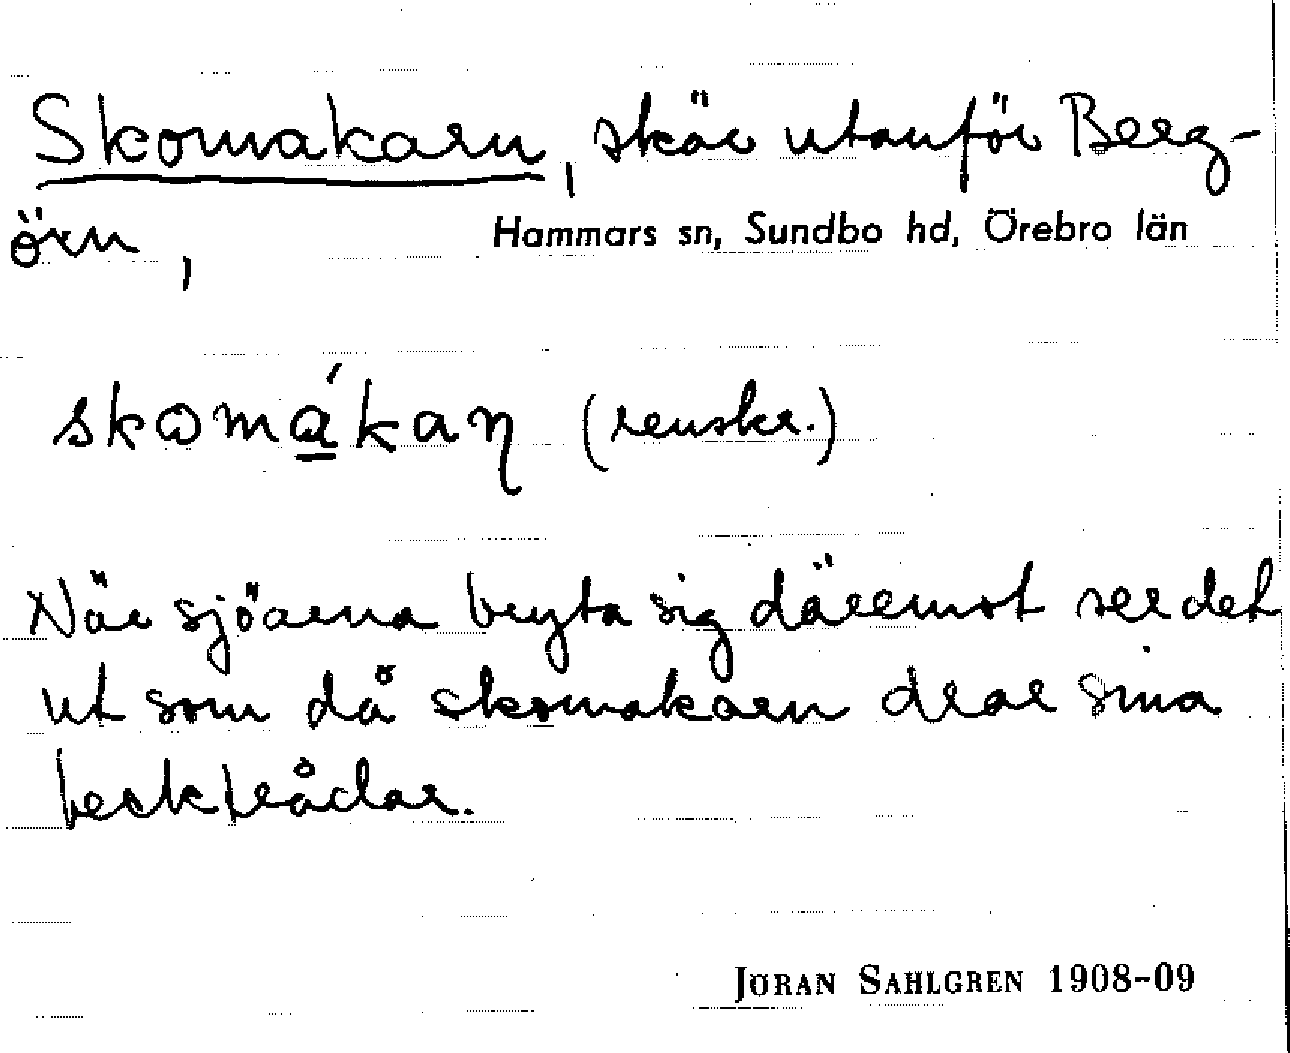 Skomakarn, skär utanför Berg-
örn,
Hammars sn, Sundbo hd, Örebro län
skomá̲kaņ (renskr.)
När sjöarna bryta sig däremot ser det
ut som då skomakarn drar sina
becktrådar.
JÖRAN SAHLGREN 1908-09